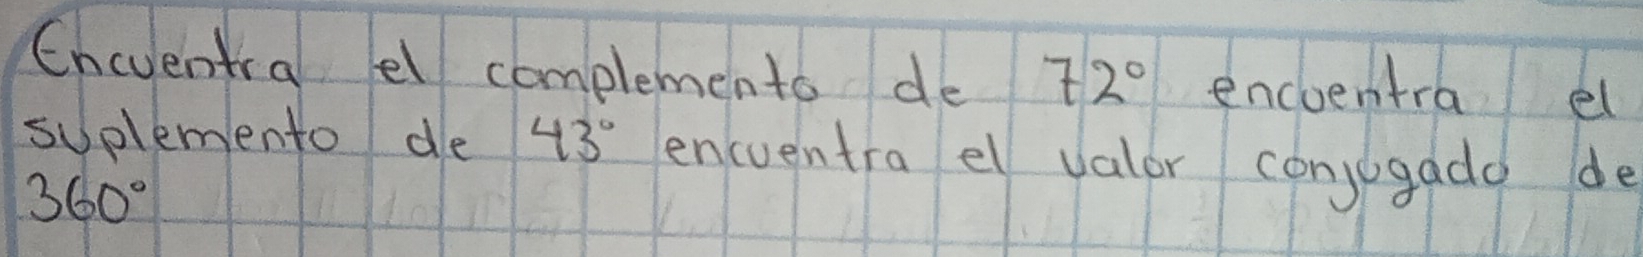 Encuentra el complemento de 72° encuentra el
suplemento de 43° encuentra el valor conjugado de
360°